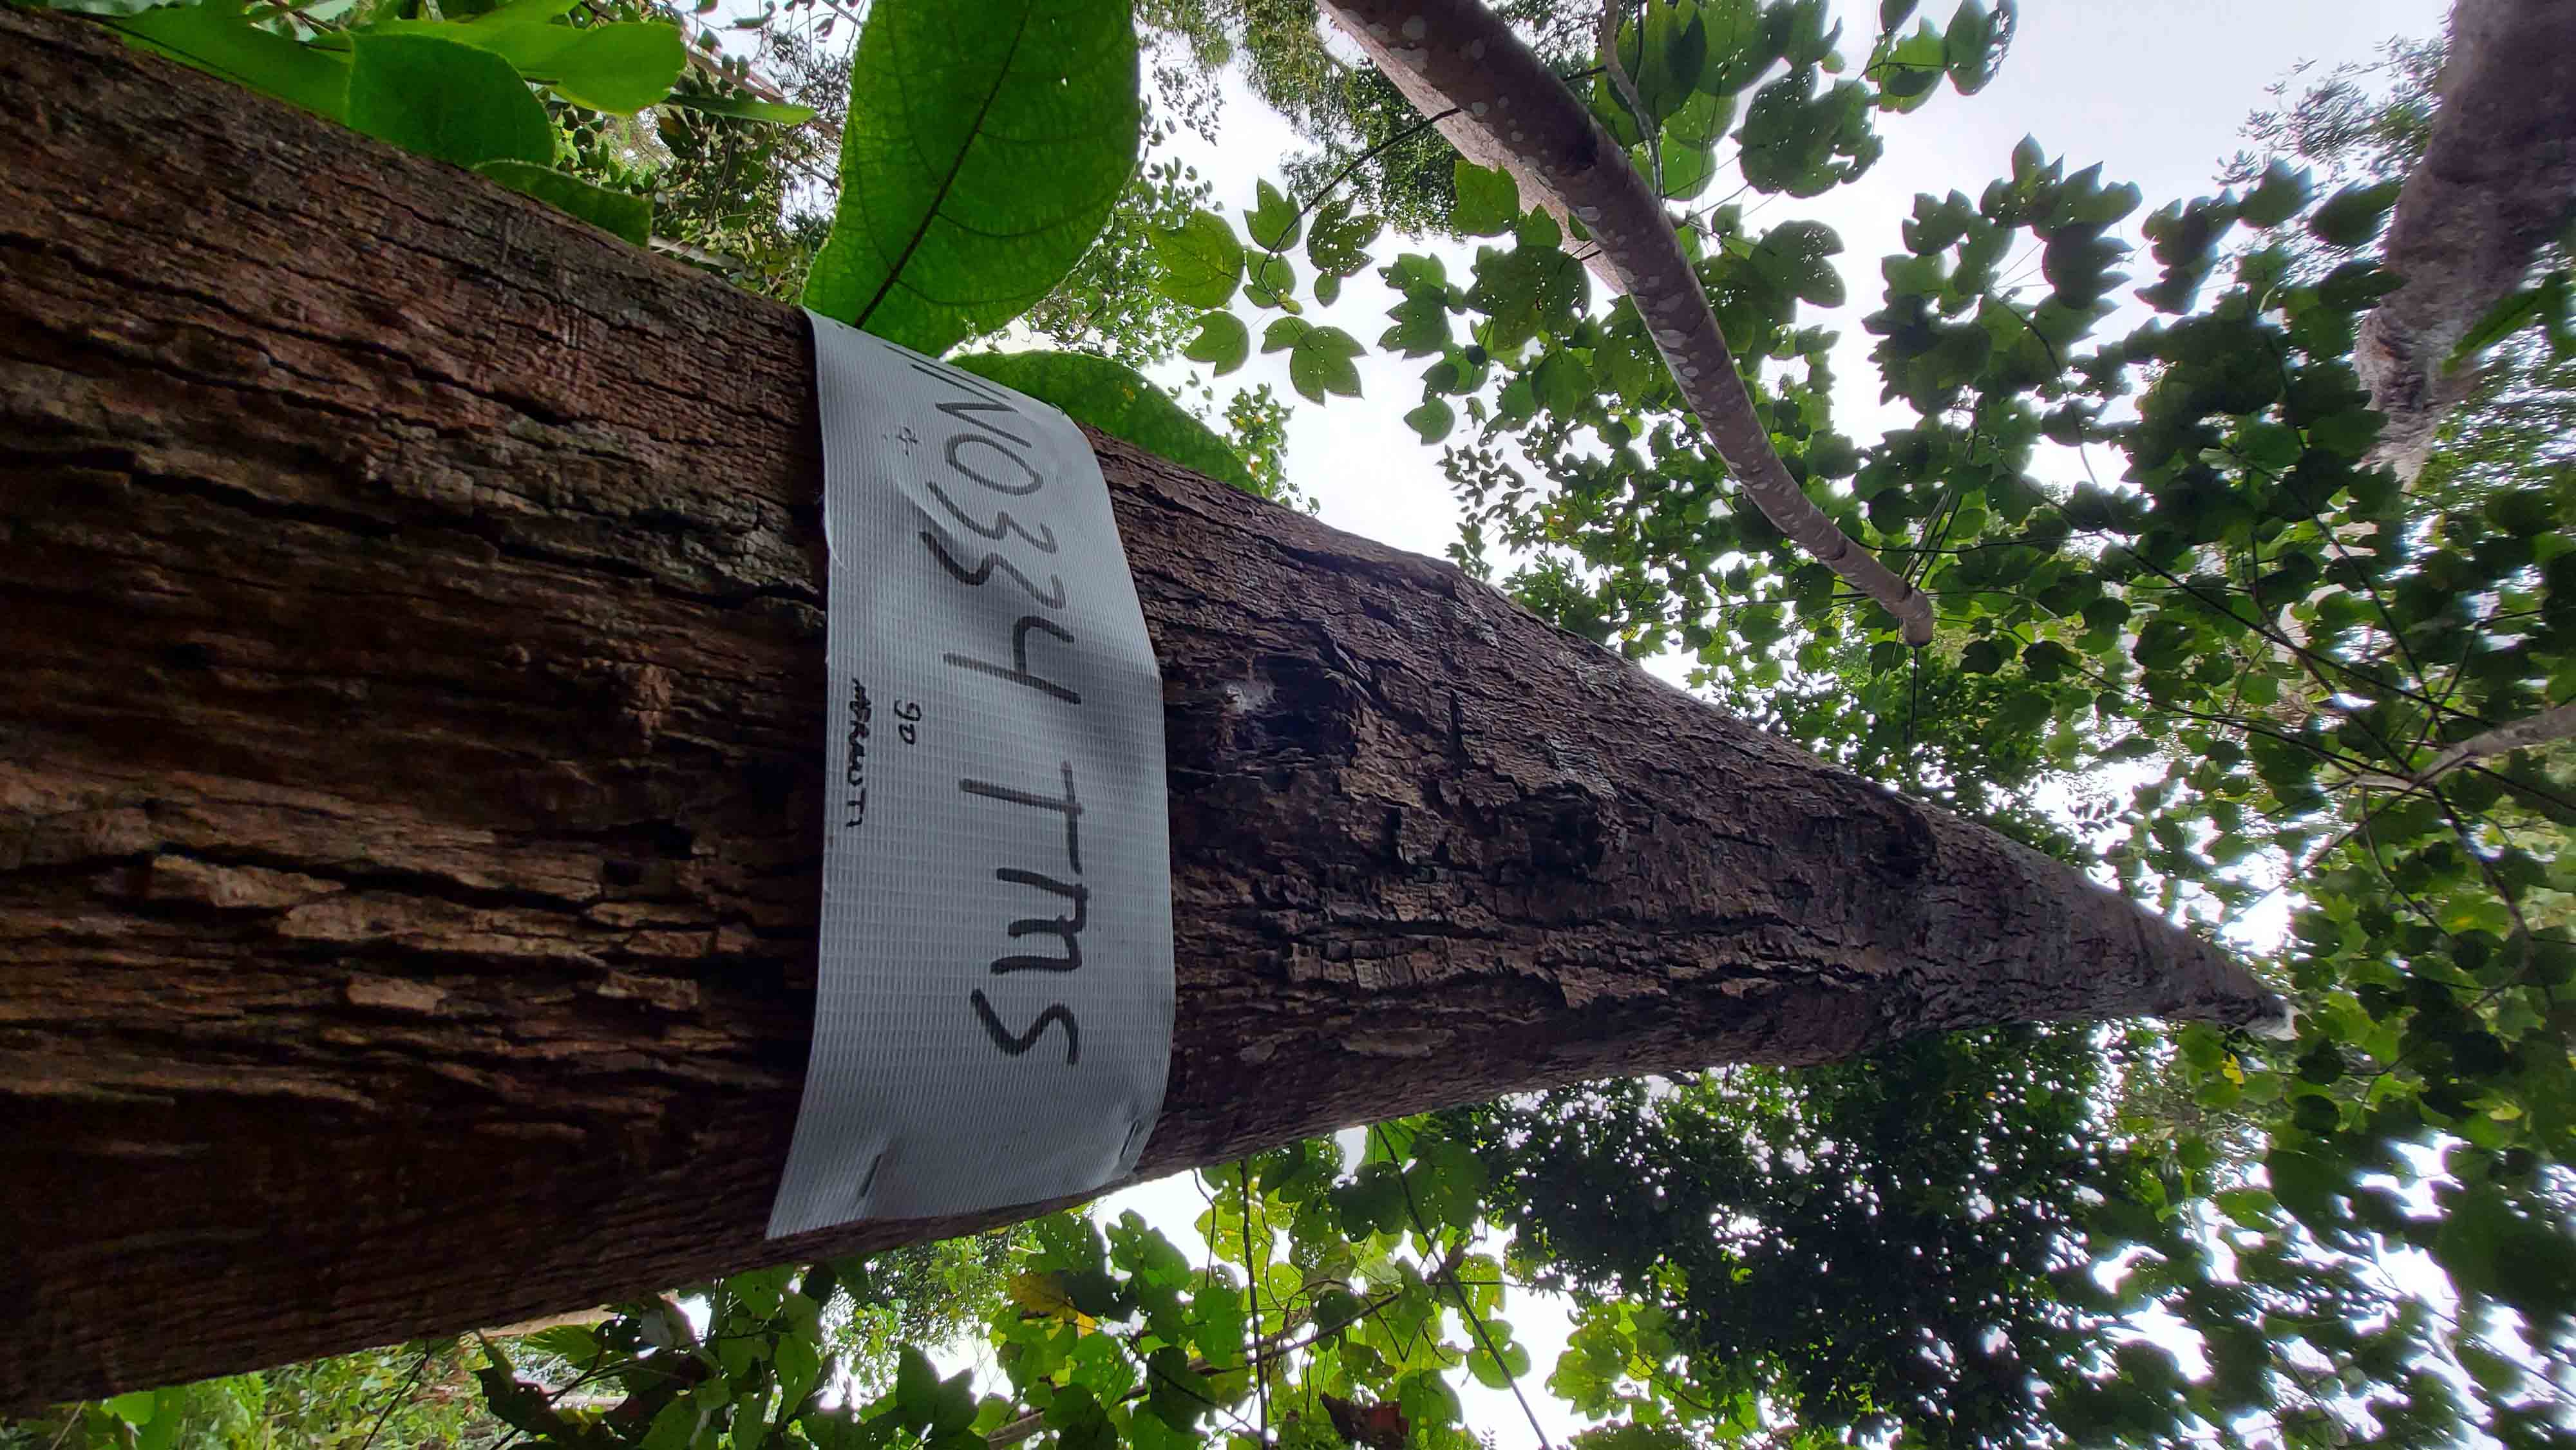 NO334 TMS
90
MERANTI